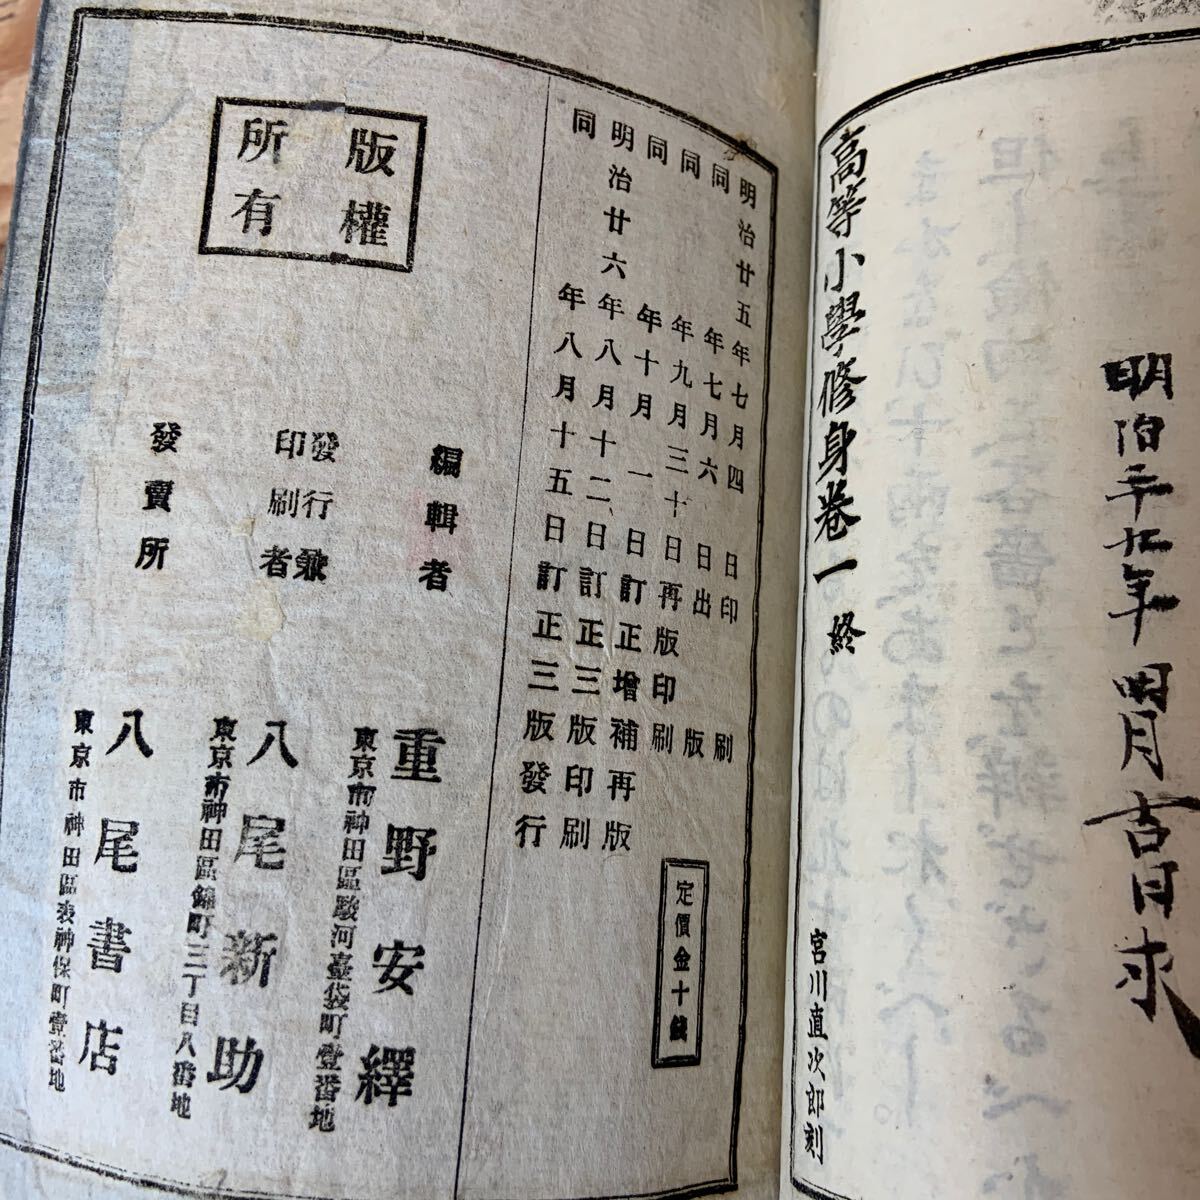 明治三十九年四月吉日求
高等小學修身卷一 終
宮川直次郎刻
明治廿五年七月四日印刷
同年七月六日出版
同年九月三十日再版印刷
同年十月一日訂正增補再版
明治廿六年八月十二日訂正三版印刷
同年八月十五日訂正三版發行
定價金十錢
版權
所有
編輯者 重野安繹
東京市神田區駿河臺袋町壹番地
發行兼
印刷者 八尾新助
東京市神田區錦町三丁目八番地
發賣所 八尾書店
東京市神田區表神保町壹番地